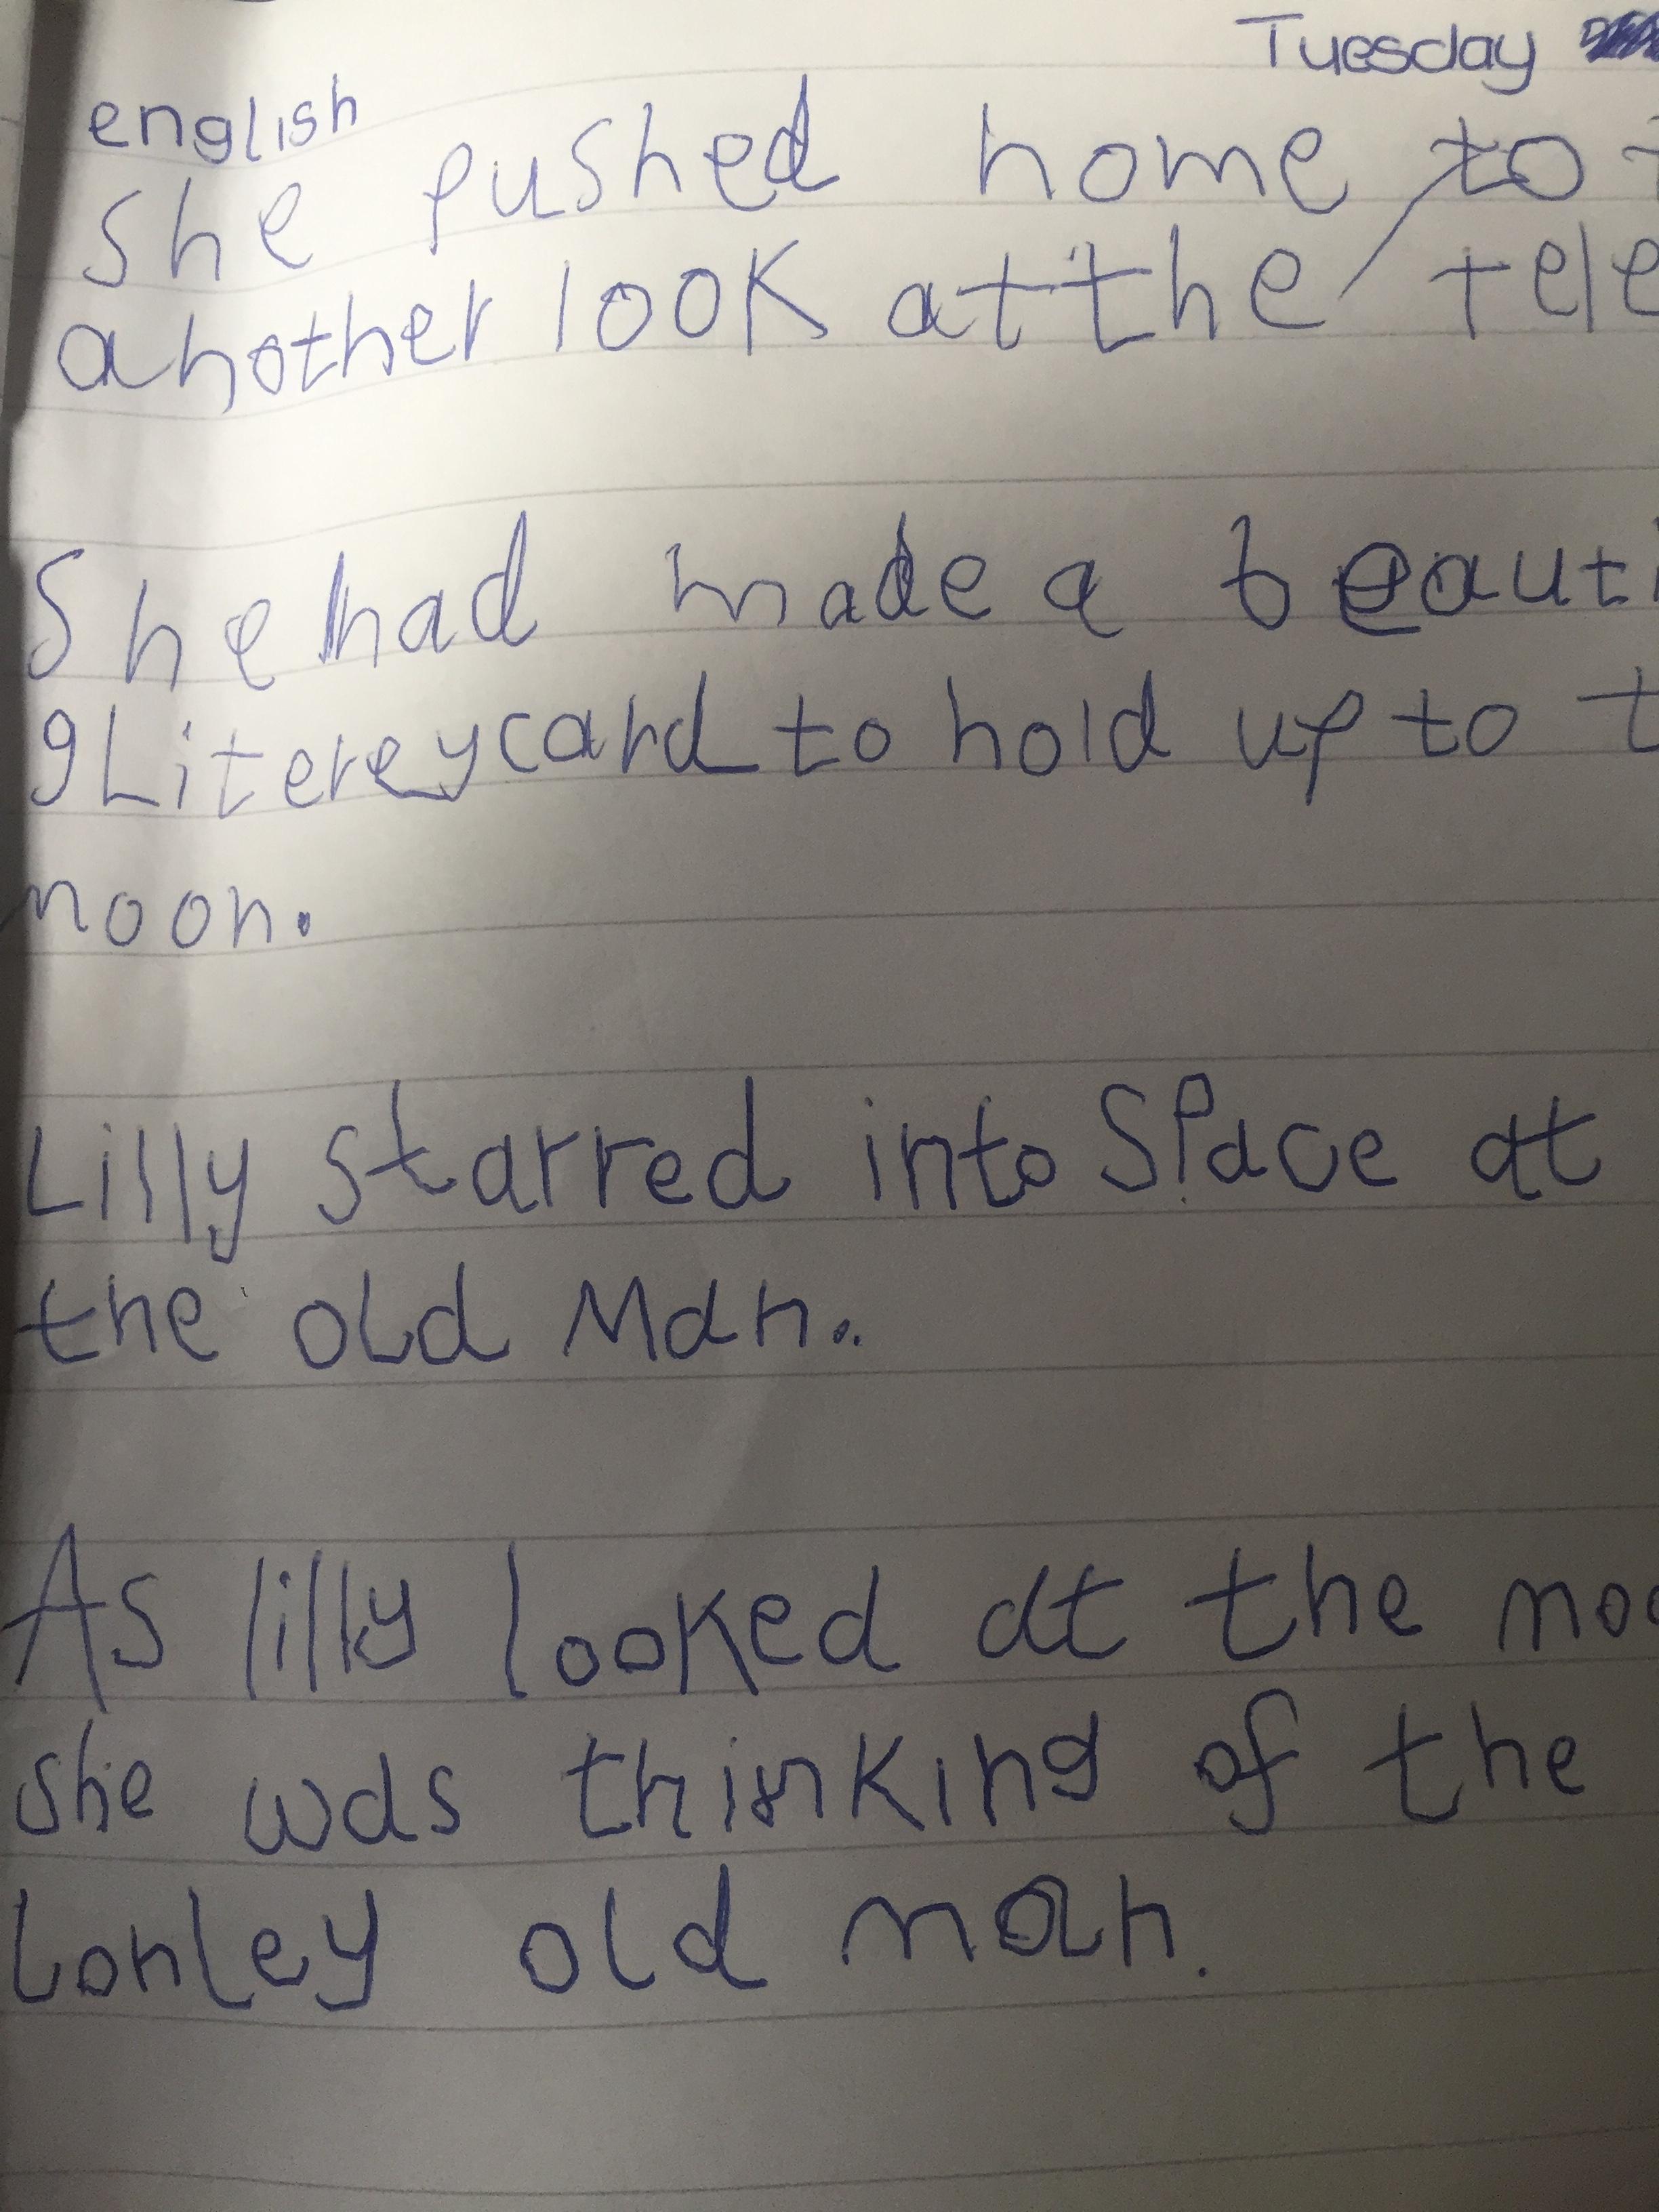 Tuesday
english
She pushed home to
another look at the tele
She had made a beauti
gLiterey card to hold up to t
moon.
Lilly starred into Space at
the old Man.
As lilly looked at the moo
she was thinking of the
Lonley old man.